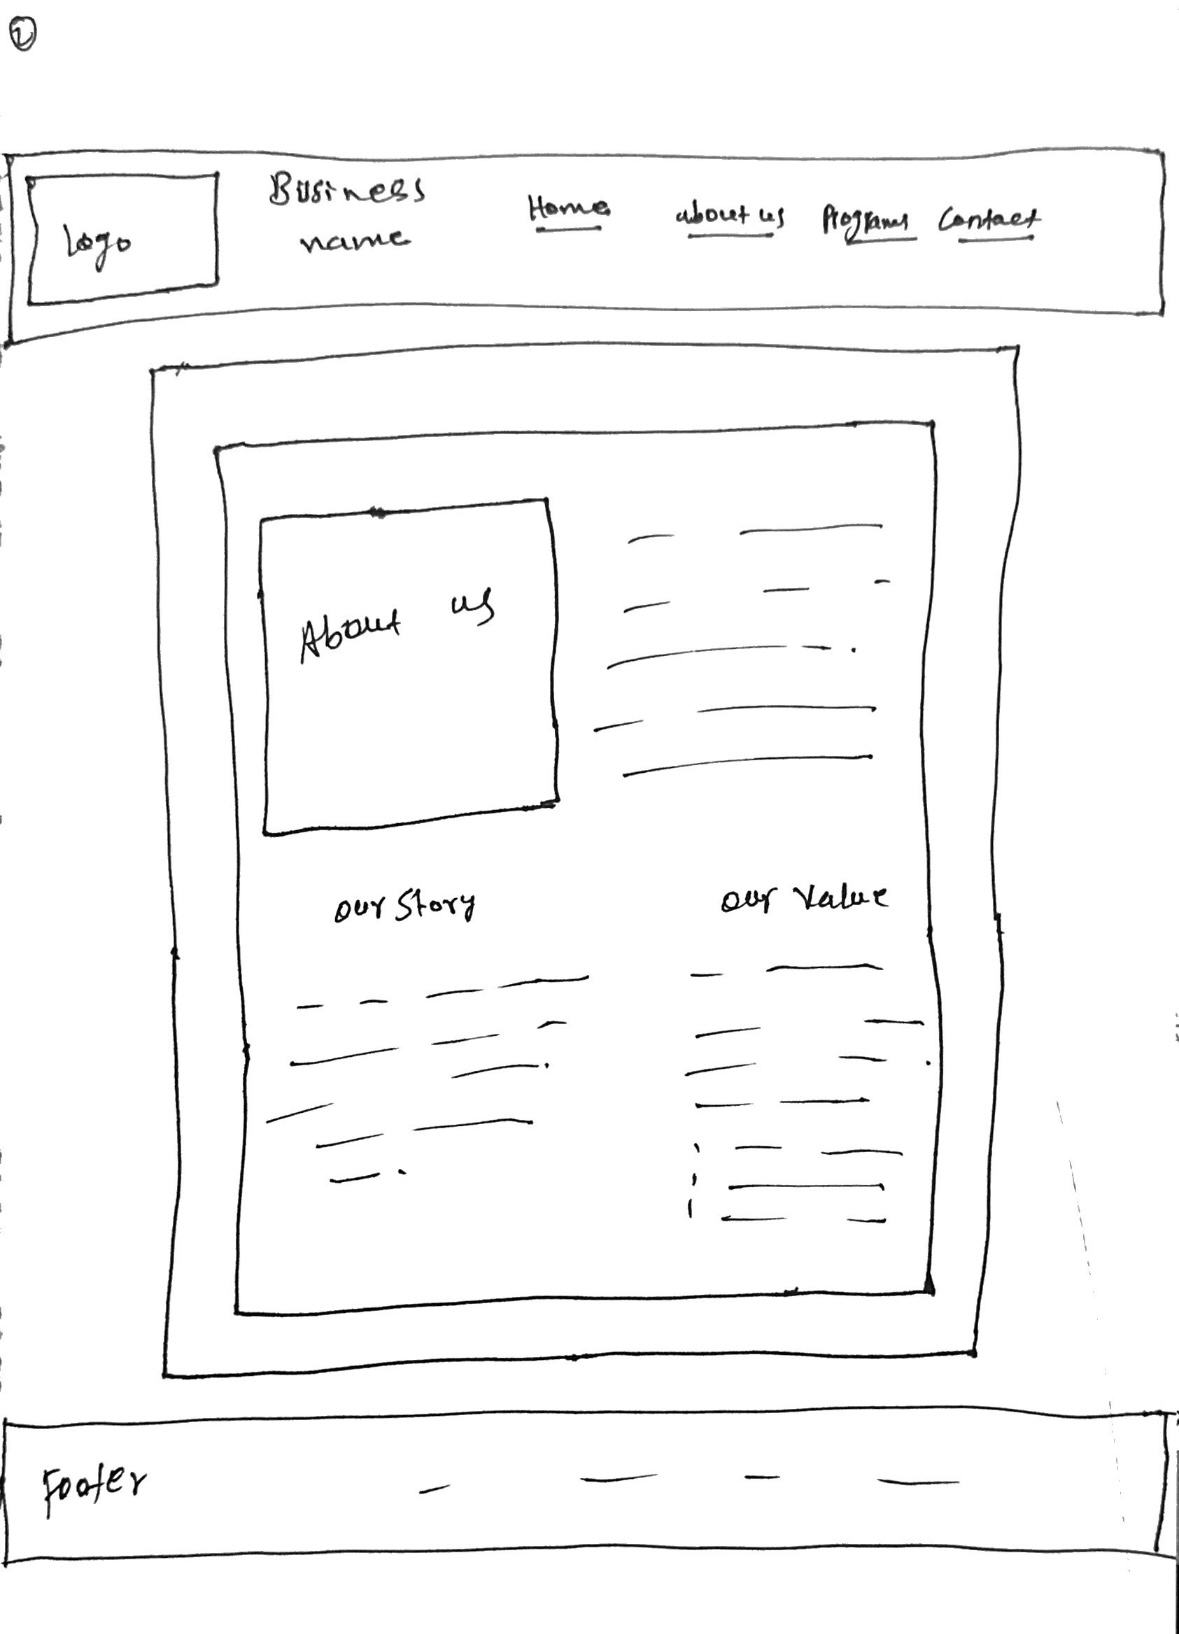 2
Logo
Business
name
Home about us Programs Contact
About us
our Story
our Value
Footer